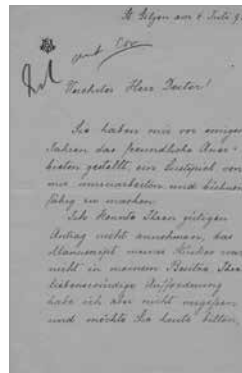 St. Gilgen am 4. Juli 9
Verehrter Herr Doctor!
Sie haben mir vor einigen
Jahren das freundliche Aner-
bieten gestellt, ein Lustspiel von
mir umzuarbeiten und bühnen
fähig zu machen.
Ich konnte Ihren gütigen
Antrag nicht annehmen, das
Manuscript meines Stückes war
nicht in meinem Besitze. Ihre
liebenswürdige Aufforderung
habe ich aber nicht vergessen
und möchte Sie heute bitten,